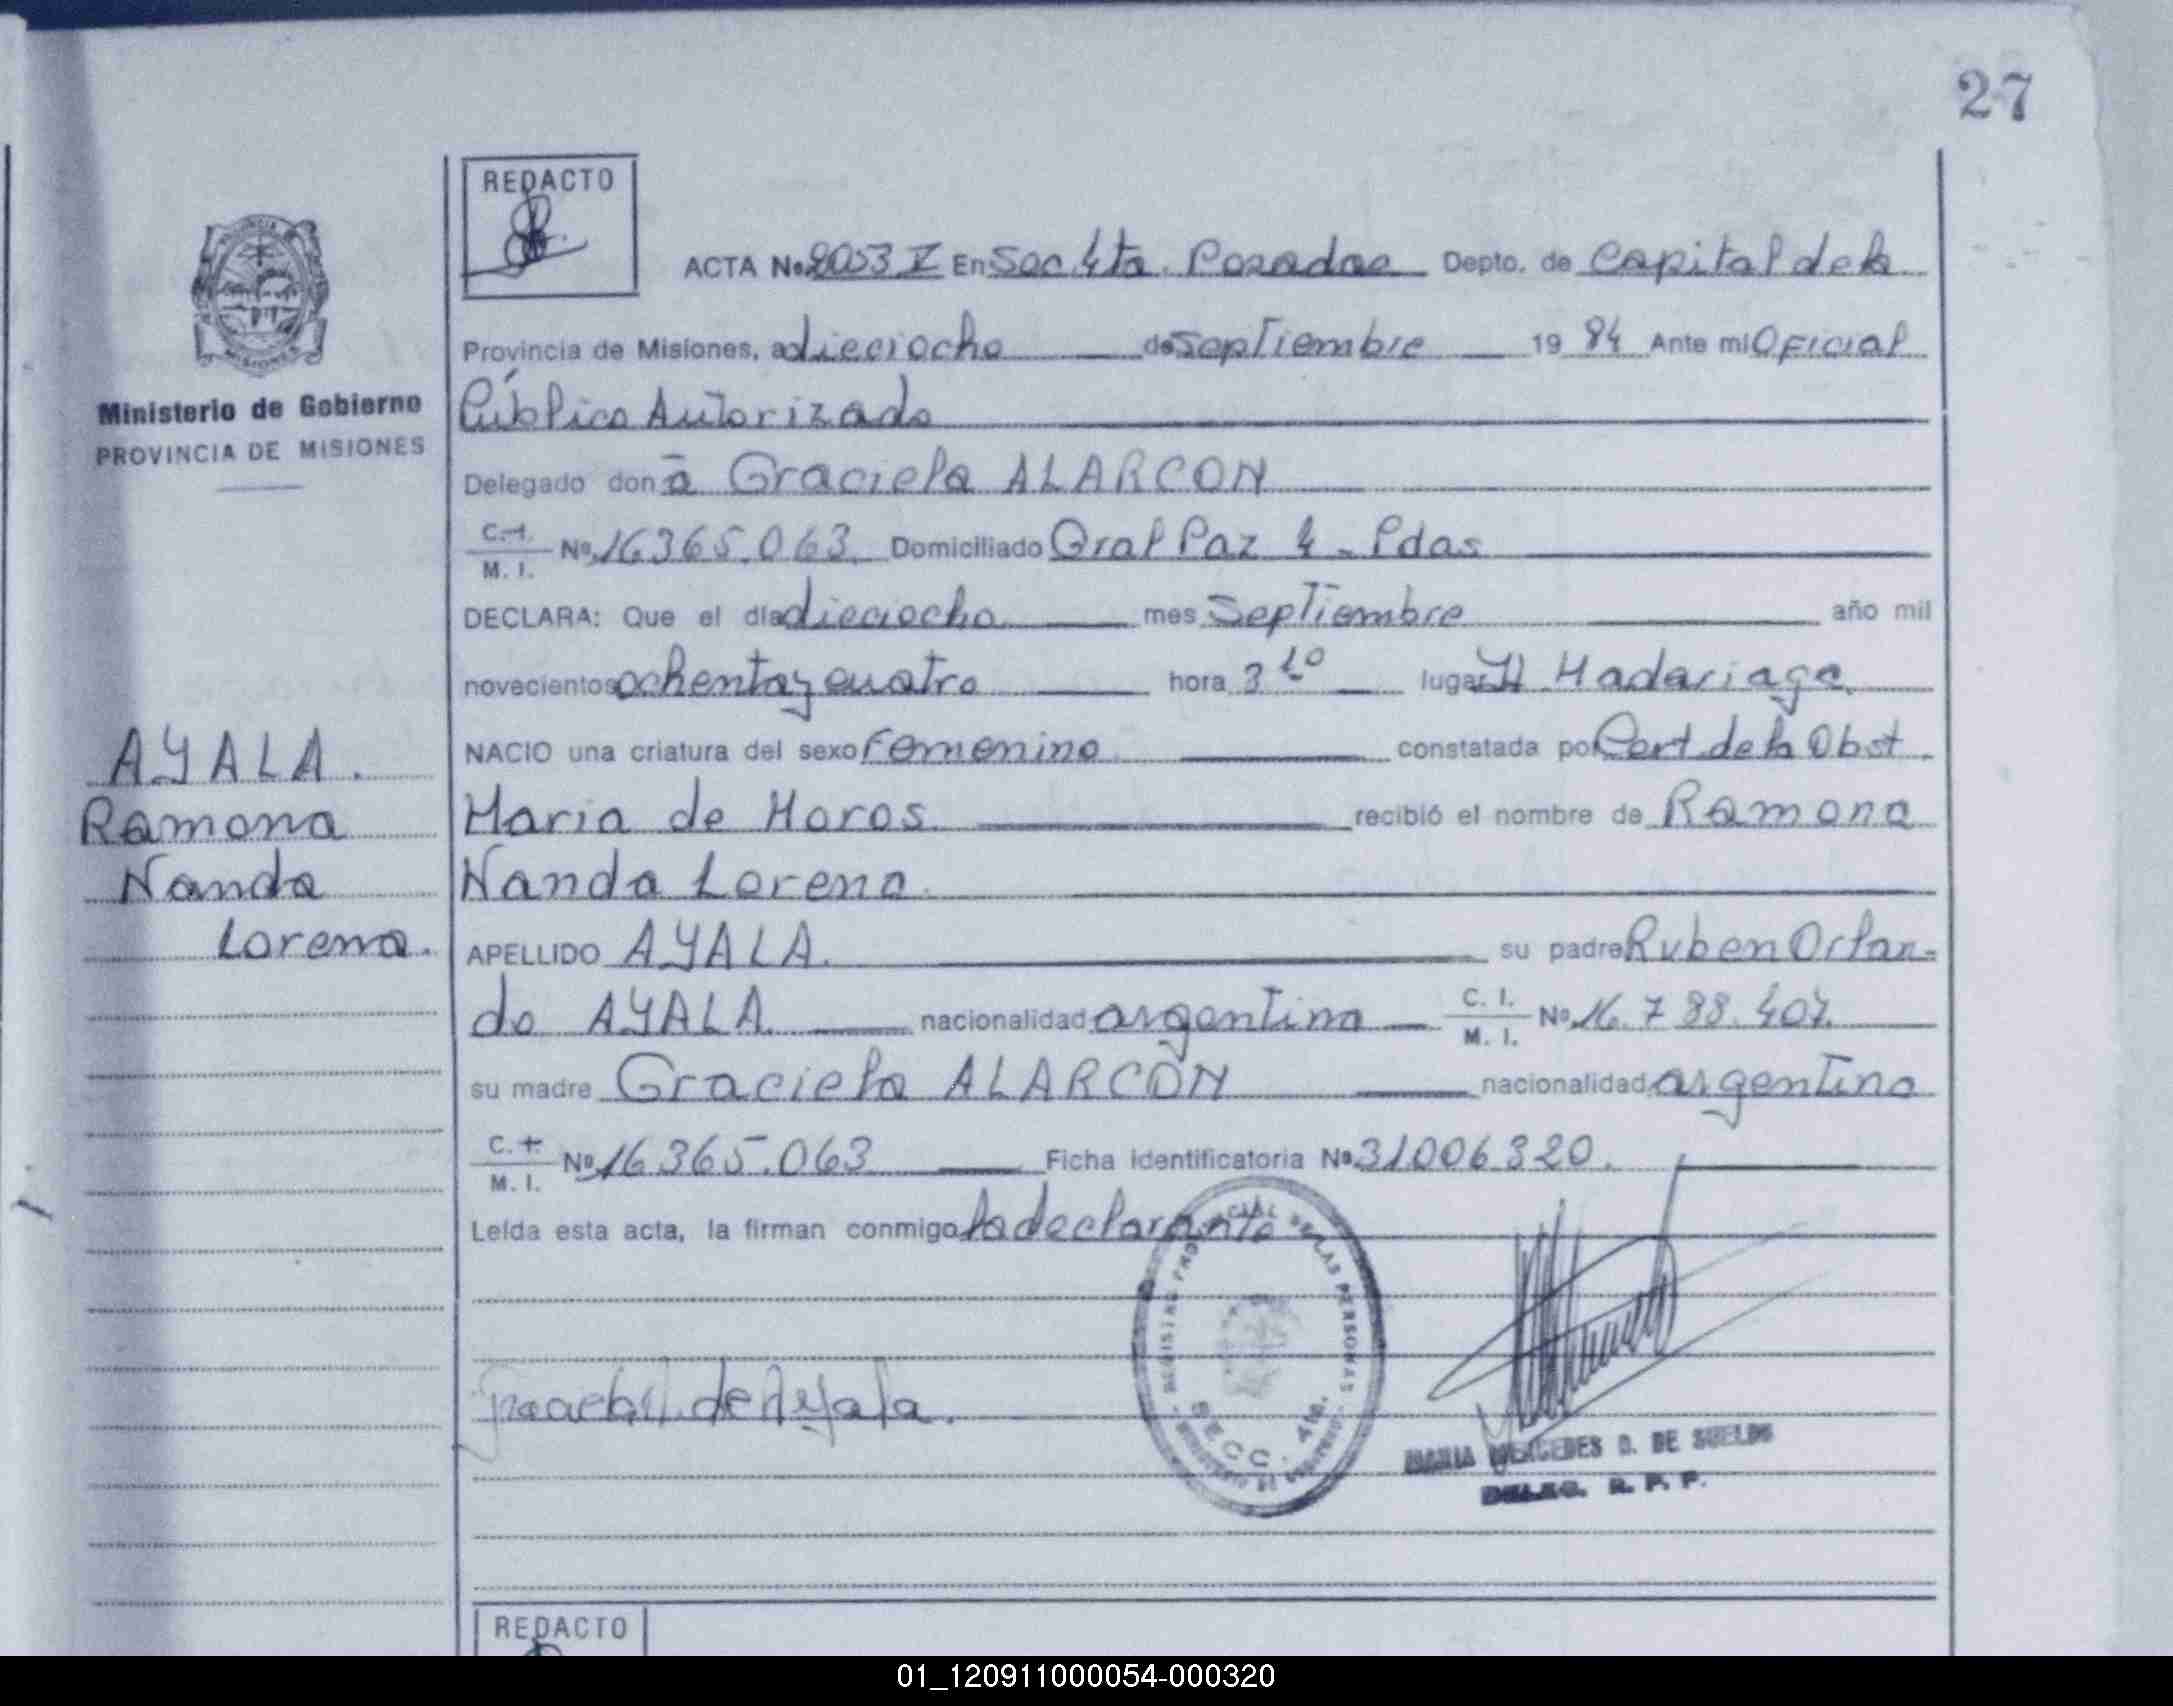 27
REDACTO
ACTA No 2053 I En Secc 4ta. Posadas Depto. de Capital de la
Provincia de Misiones, a dieciocho de Septiembre 19 84 Ante mi Oficial
Público Autorizado
Ministerio de Gobierno
PROVINCIA DE MISIONES
Delegado don ã Graciela ALARCON
C. I. M. I. No 16365.063. Domiciliado Gral Paz 4 - Pdas
DECLARA: Que el día dieciocho mes Septiembre año mil
novecientos ochenta y cuatro hora 3 10 lugar H. Madariaga.
NACIO una criatura del sexo Femenino constatada por Cert de la Obst.
Maria de Moros recibió el nombre de Ramona
Nanda Lorena.
APELLIDO AYALA. su padre Ruben Orlan-
do AYALA nacionalidad argentina C. I. M. I. No 16.788.407.
su madre Graciela ALARCÓN nacionalidad argentina
C. I. M. I. No 16365.063 Ficha identificatoria No 31006320.
Leída esta acta, la firman conmigo la declarante
AYALA.
Ramona
Nanda
Lorena.
de Ayala.
REGISTRO PROVINCIAL DE LAS PERSONAS
SECC. 4ta.
MARIA MERCEDES D. DE SUELDO
DELEG. R. P. P.
REDACTO
01_120911000054-000320